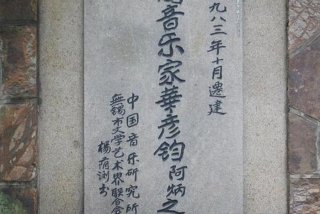 九八三年十月遷建
音乐家華彦鈞阿炳之
中国音乐研究所
無锡市文学艺术界联合会
楊荫浏书